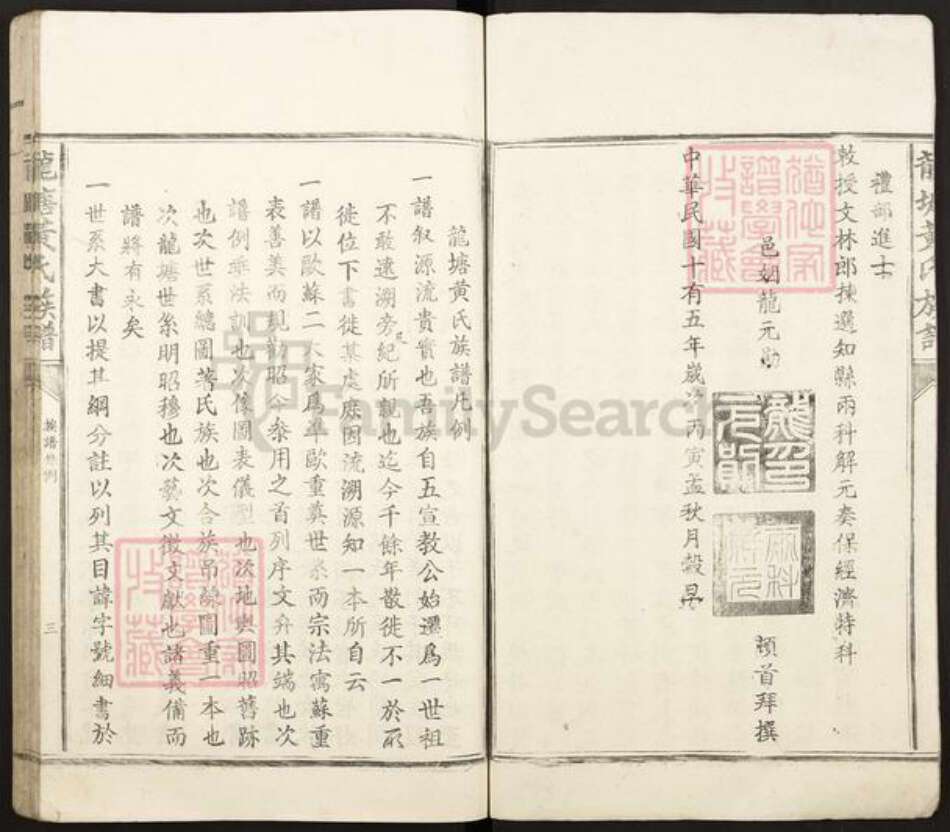 禮部進士
敕授文林郎揀選知縣兩科解元奏保經濟特科
邑姻龍元勛
頓首拜撰
兩科解元
中華民國十有五年歲次丙寅孟秋月穀旦
龍塘黃氏族譜
龍塘黃氏族譜凡例
一譜叙源流貴實也吾族自五宣教公始遷爲一世祖
不敢遠溯旁紀所親也迄今千餘年散徙不一於所
徙位下書徙某處庶因流溯源知一本所自云
一譜以歐蘇二大家爲準歐重奠世系而宗法寓蘇重
表善美而規勸昭今叅用之首列序文弁其端也次
譜例乖法訓也次像圖表儀型也次地輿圖昭舊跡
也次世系總圖著氏族也次合族吊線圖重一本也
次龍塘世系明昭穆也次藝文徵文獻也諸義備而
譜將有永矣
一世系大書以提其綱分註以列其目諱字號細書於
龍塘黃氏族譜
族譜凡例
三
FamilySearch
譜學會
收藏